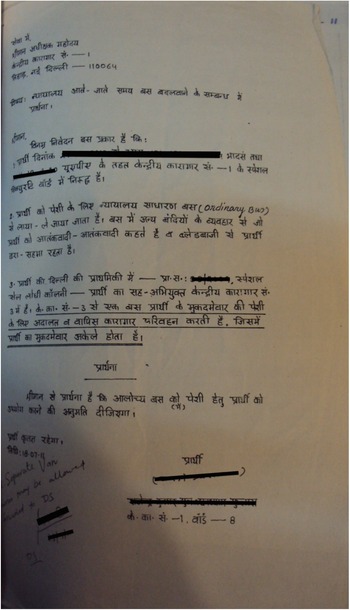 - 11
सेवा में,
श्रीमान अधीक्षक महोदय
केन्द्रीय कारागार सं. — 1
तिहाड़, नई दिल्ली — 110064
विषय: न्यायालय आते-जाते समय बस बदलवाने के सम्बन्ध में
प्रार्थना।
श्रीमान,
विनम्र निवेदन इस प्रकार है कि:
1. प्रार्थी दिनांक भादसं तथा
यूएपीए के तहत केन्द्रीय कारागार सं. —1 के स्पेशल
सिक्युरिटी वॉर्ड में निरुद्ध है।
2. प्रार्थी को पेशी के लिए न्यायालय साधारण बस (Ordinary Bus)
से लाया-ले जाया जाता है। बस में अन्य बंदियों के व्यवहार से जो
प्रार्थी को आतंकवादी-आतंकवादी कहते है व से प्रार्थी
डरा-सहमा रहता है।
3. प्रार्थी की दिल्ली की प्राथमिकी में — प्र.सं.: , स्पेशल
सेल लोधी कॉलनी — प्रार्थी का सह-अभियुक्त केन्द्रीय कारागार सं.
3 में है। के.का.सं. —3 से एक बस प्रार्थी के मुकदमेवार की पेशी
के लिए अदालत व वापिस कारागार परिवहन करती है, जिसमें
प्रार्थी का मुकदमेवार अकेले होता है।
प्रार्थना
श्रीमान से प्रार्थना है कि आलोच्य बस को (ही) पेशी हेतु प्रार्थी को
उपयोग करने की अनुमति दीजिएगा।
प्रार्थी कृतज्ञ रहेगा,
तिथि:
प्रार्थी
Separate Van
may be allowed
के. का. सं. —1, वॉर्ड — 8